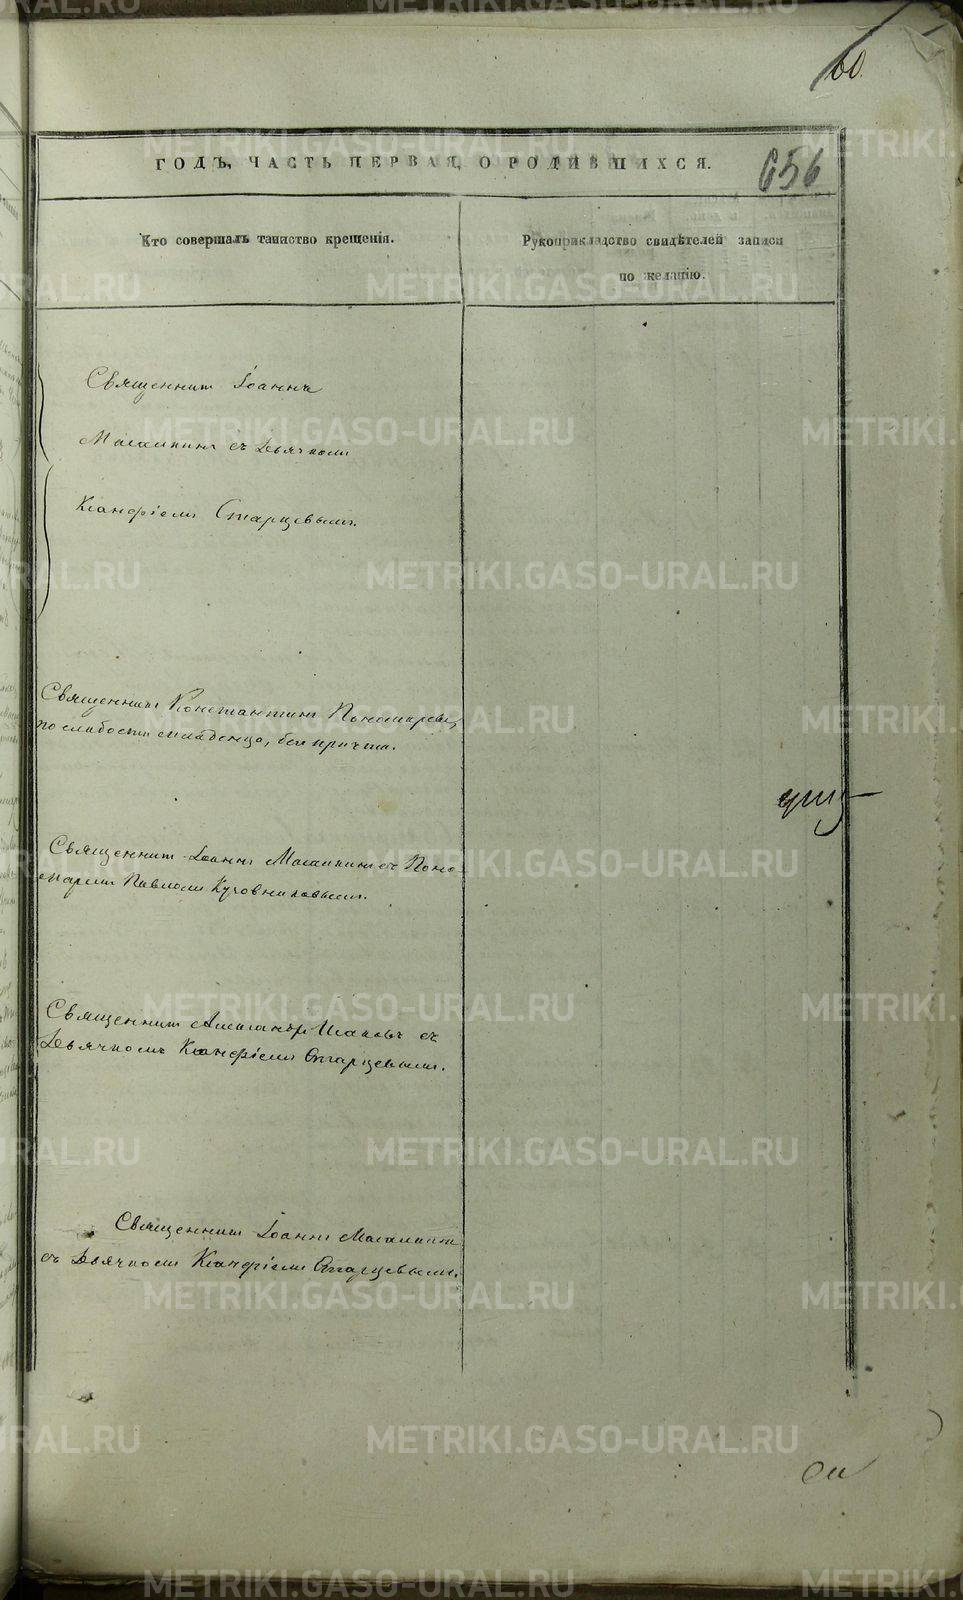 60.
ГОДЪ, ЧАСТЬ ПЕРВАЯ, О РОДИВШИХСЯ.
656
Кто совершалъ таинство крещенія.
Рукоприкладство свидѣтелей записи
по желанію.
Священник Іоаннъ
съ Дьячкомъ
Ксанфіемъ Старцевымъ.
Священникъ Константинъ Пономаревъ,
по слабости младенца, безъ причта.
Священник Іоаннъ съ Поно-
маремъ Павломъ Кузовниковымъ.
Священник Александръ съ
Дьячкомъ Ксанфіемъ Старцевымъ.
Священник Іоаннъ
съ Дьячкомъ Ксанфіемъ Старцевымъ.
METRIKI.GASO-URAL.RU